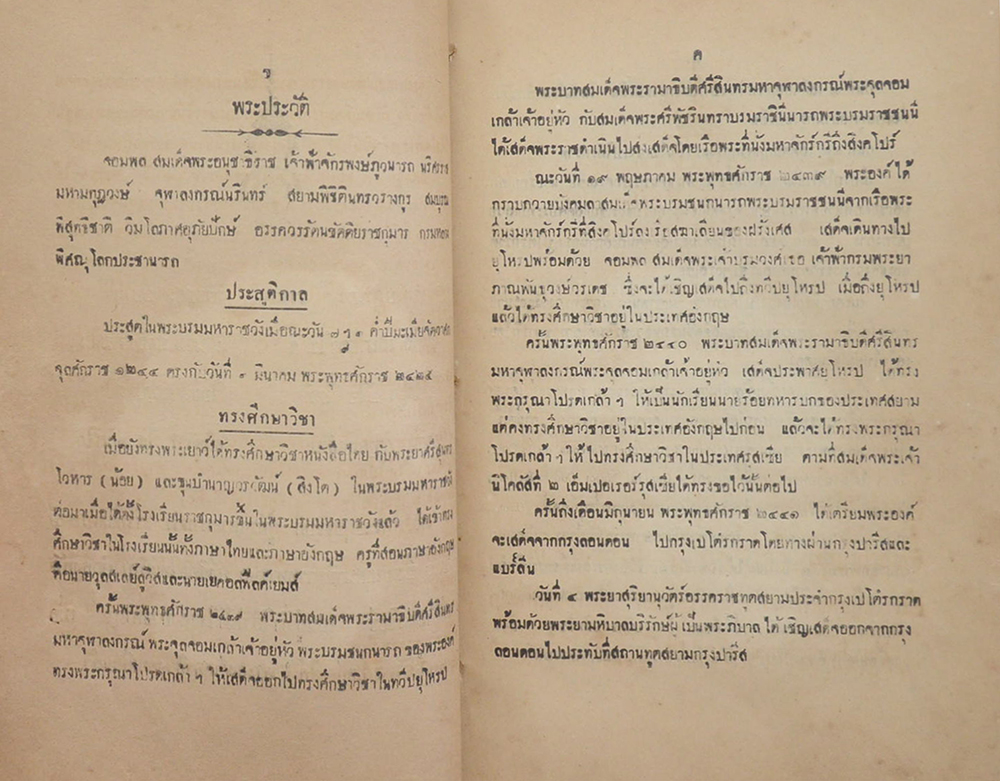 ข
พระประวัติ
จอมพล สมเด็จพระอนุชาธิราช เจ้าฟ้าจักรพงษ์ภูวนารถ นริศรราช
มหามกุฎวงษ์ จุฬาลงกรณ์นรินทร์ สยามพิชิตินทรวรางกูร สมบูรณ
พิสุทธิชาติ วิมโลภาศอุภัยปักษ์ อรรควรรัตนขัติยราชกุมาร กรมหลวง
พิศณุโลกประชานารถ
ประสูติกาล
ประสูตในพระบรมมหาราชวังเมื่อณะวัน ค่ำปีมะเมียจัตวาศก
จุลศักราช ๑๒๔๔ ตรงกับวันที่ มีนาคม พระพุทธศักราช ๒๔๒๕
ทรงศึกษาวิชา
เมื่อยังทรงพระเยาว์ได้ทรงศึกษาวิชาหนังสือไทย กับพระยาศรีสุนทร
โวหาร (น้อย) และขุนบำนาญวรวัฒน์ (สิงโต) ในพระบรมมหาราชวัง
ต่อมาเมื่อได้ตั้งโรงเรียนราชกุมารขึ้นในพระบรมมหาราชวังแล้ว ได้เข้าทรง
ศึกษาวิชาในโรงเรียนนั้นทั้งภาษาไทยและภาษาอังกฤษ ครูที่สอนภาษาอังกฤษ
คือนายวุลสเลย์ลูวิสและนายเยคอลฟิลด์เยมส์
ครั้นพระพุทธศักราช ๒๔๓๙ พระบาทสมเด็จพระรามาธิบดีศรีสินทร
มหาจุฬาลงกรณ์ พระจุลจอมเกล้าเจ้าอยู่หัว พระบรมชนกนารถ ของพระองค์
ทรงพระกรุณาโปรดเกล้า ฯ ให้เสด็จออกไปทรงศึกษาวิชาในทวีปยุโหรป
ค
พระบาทสมเด็จพระรามาธิบดีศรีสินทรมหาจุฬาลงกรณ์พระจุลจอม
เกล้าเจ้าอยู่หัว กับสมเด็จพระศรีพัชรินทราบรมราชินีนารถพระบรมราชชนนี
ได้เสด็จพระราชดำเนินไปส่งเสด็จโดยเรือพระที่นั่งมหาจักร์กรีถึงสิงคโปร์
ณะวันที่ ๑๙ พฤษภาคม พระพุทธศักราช ๒๔๓๙ พระองค์ได้
กราบถวายบังคมลาสมเด็จพระบรมชนกนารถพระบรมราชชนนีจากเรือพระ
ที่นั่งมหาจักร์กรีที่สิงคโปร์ลงเรือสฆาเลียนของฝรั่งเศส เสด็จเดินทางไป
ยุโหรปพร้อมด้วย จอมพล สมเด็จพระเจ้าบรมวงศ์เธอ เจ้าฟ้ากรมพระยา
ภาณุพันธุวงษ์วรเดช ซึ่งจะได้เชิญเสด็จไปถึงทวีปยุโหรป เมื่อถึงยุโหรป
แล้วได้ทรงศึกษาวิชาอยู่ในประเทศอังกฤษ
ครั้นพระพุทธศักราช ๒๔๔๐ พระบาทสมเด็จพระรามาธิบดีศรีสินทร
มหาจุฬาลงกรณ์พระจุลจอมเกล้าเจ้าอยู่หัว เสด็จประพาศยุโหรป ได้ทรง
พระกรุณาโปรดเกล้า ฯ ให้เป็นนักเรียนนายร้อยทหารบกของประเทศสยาม
แต่คงทรงศึกษาวิชาอยู่ในประเทศอังกฤษไปก่อน แล้วจะได้ทรงพระกรุณา
โปรดเกล้า ฯ ให้ไปทรงศึกษาวิชาในประเทศรุสเซีย ตามที่สมเด็จพระเจ้า
นิโคลัสที่ ๒ เอ็มเปอเรอร์รุสเซียได้ทรงขอไว้นั้นต่อไป
ครั้นถึงเดือนมิถุนายน พระพุทธศักราช ๒๔๔๑ ได้เตรียมพระองค์
จะเสด็จจากกรุงลอนดอน ไปกรุงเปโตร์กราดโดยทางผ่านกรุงปารีสและ
แบร์ลิน
วันที่ ๔ พระยาสุริยานุวัตร์อรรคราชทูตสยามประจำกรุงเปโตร์กราด
พร้อมด้วยพระยามหิบาลบริรักษ์ผู้เป็นพระภิบาล ได้เชิญเสด็จออกจากกรุง
ลอนดอนไปประทับที่สถานทูตสยามกรุงปารีส